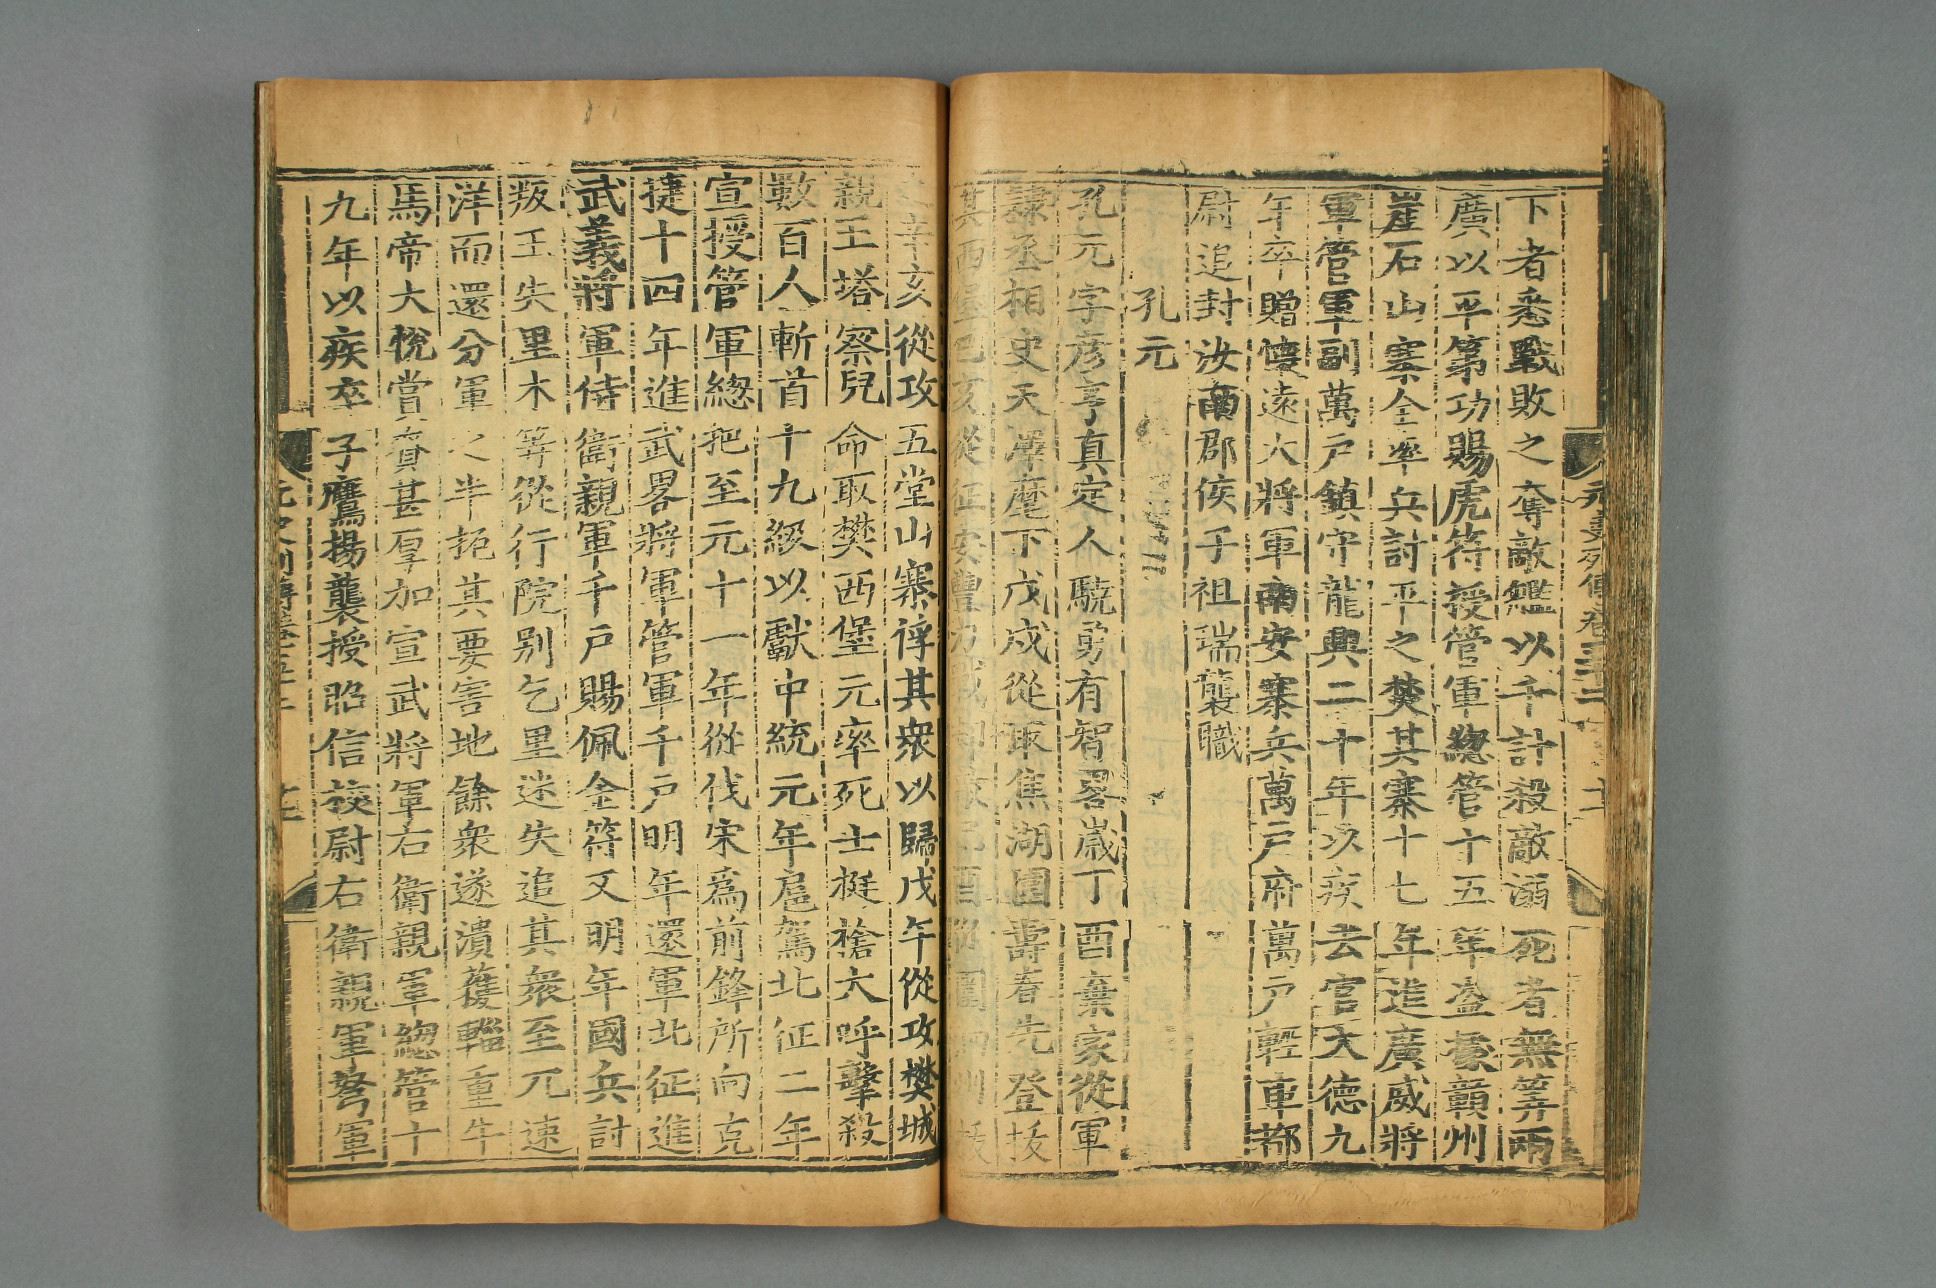 下者悉戰敗之奪敵艦以千計殺敵溺死者無筭兩
廣以平第功賜虎符授管軍總管十五年盗豪贑州
崖石山寨全率兵討平之焚其寨十七年進廣威將
軍管軍副萬戸鎮守龍興二十年以疾去官大德九
年卒贈懷遠大將軍南安寨兵萬戸府萬戸輕車都
尉追封汝南郡侯子祖瑞襲職
孔元
孔元字彦亨真定人驍勇有智畧嵗丁酉棄家從軍
隸丞相史天澤麾下戊戌從取焦湖圍壽春先登拔
其西堡己亥從征安豐
辛亥從攻五堂山寨俘其衆以歸戊午從攻樊城
親王塔察兒命取樊西堡元率死士挺槍大呼擊殺
數百人斬首十九級以獻中統元年扈駕北征二年
宣授管軍總把至元十一年從伐宋爲前鋒所向克
捷十四年進武畧將軍管軍千戸明年還軍北征進
武義將軍侍衛親軍千戸賜佩金符又明年國兵討
叛王失里木等從行院别乞里迷失追其衆至兀速
洋而還分軍之半扼其要害地餘衆遂潰獲輜重牛
馬帝大悅賞賚甚厚加宣武將軍右衛親軍總管十
九年以疾卒子鷹揚襲授昭信校尉右衛親軍弩軍